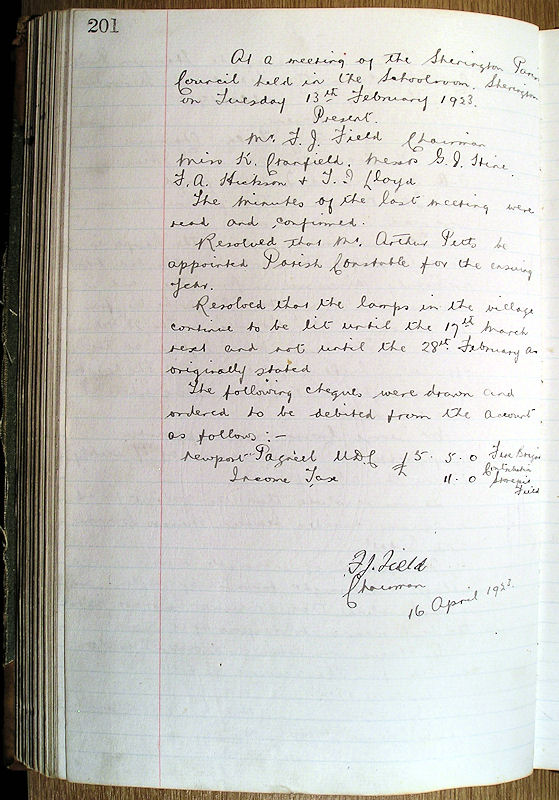 201
At a meeting of the Sherington Parish
Council held in the Schoolroom, Sherington
on Tuesday 13th February 1923.
Present.
Mr. F. J. Field Chairman
Miss K. Cranfield, Messrs G. J. Hine,
F. A. Hickson & T. J. Lloyd
The minutes of the last meeting were
read and confirmed.
Resolved that Mr. Arthur Pitts be
appointed Parish Constable for the ensuing
year.
Resolved that the lamps in the village
continue to be lit until the 17th March
next and not until the 28th February as
originally stated
The following cheques were drawn and
ordered to be debited from the account
as follows :-
Newport Pagnell U.D.C £5. 5. 0 Fire Brigade
Contribution
Income Tax £ 11. 0
Field
F. J. Field
Chairman
16 April 1923.